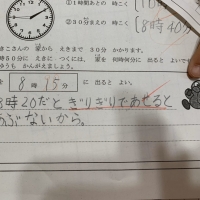 ②1時間あとの 時こく
③30分まえの 時こく
[8時40分
きこさんの 家から えきまで 30分 かかります。
時50分に えきに つくには、家を 何時何分に 出ると よい
ゆうも かんがえましょう。
を 8時15分 に 出ると よい。
8時20だと ぎりぎりであせると
あぶないから。